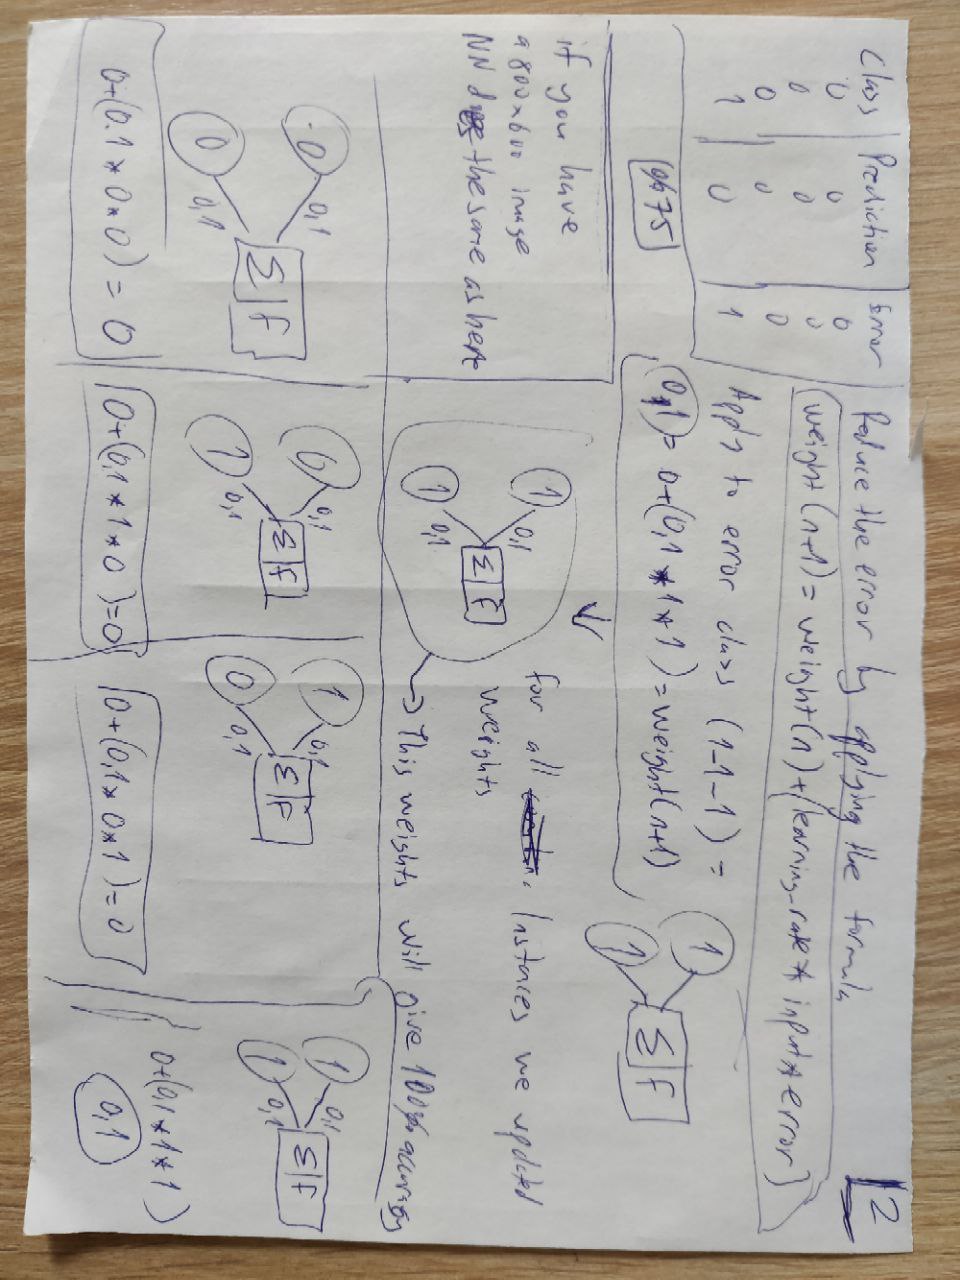 2
Class Prediction Error
0 0 0
0 0 0
0 0 0
1 0 1
%75
Reduce the error by applying the formula
weight(n+1) = weight(n) + (learning_rate * input * error)
Apply to error class (1-1-1) =
0,1 = 0+(0,1 * 1 * 1) = weight(n+1)
1
1
Σ f
if you have
a 800x600 image
NN does the same as here
1
0,1
Σ f
1
0,1
for all Instances we updated
weights
This weights will give 100% accuracy
0 0,1
Σ f
0 0,1
0+(0.1 * 0 * 0) = 0
0 0,1
Σ f
1 0,1
0+(0,1 * 1 * 0) = 0
1 0,1
Σ f
0 0,1
0+(0,1 * 0 * 1) = 0
1 0,1
Σ f
1 0,1
0+(0,1 * 1 * 1)
0,1